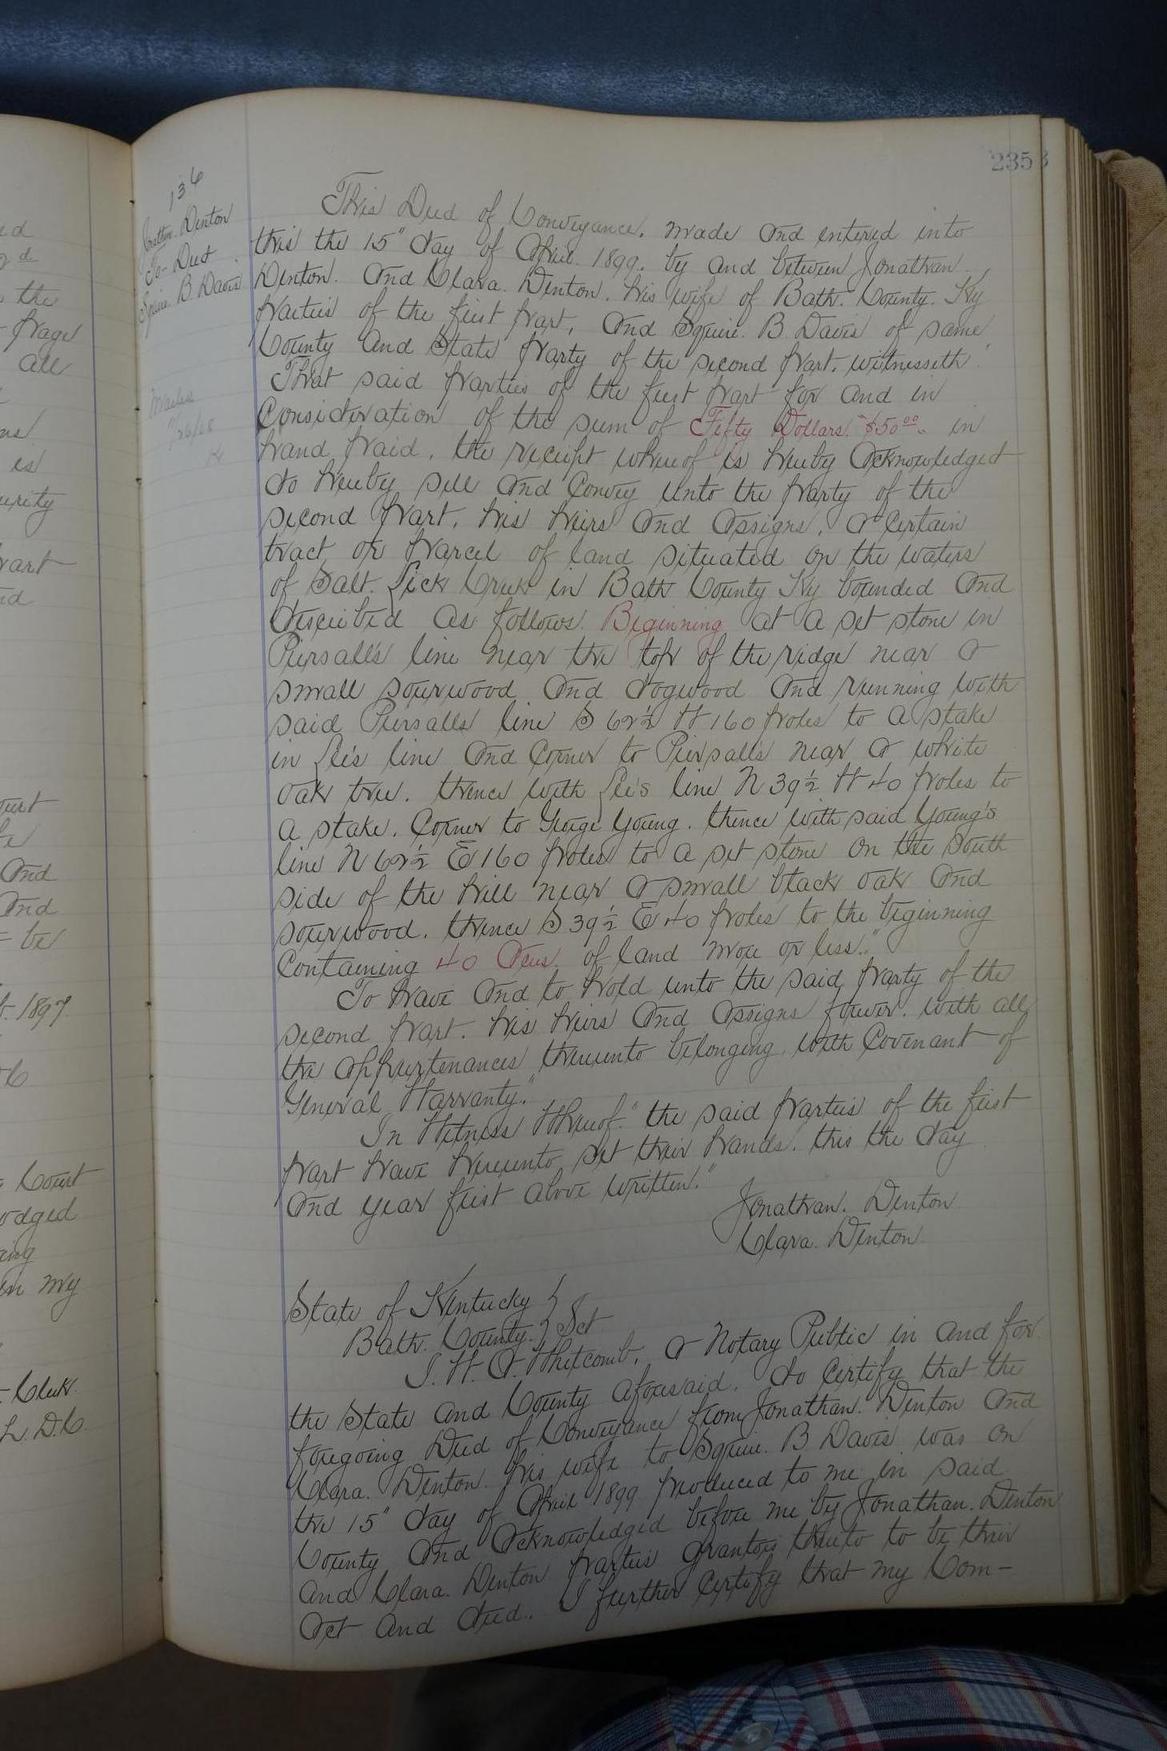 235
136
Jonathan. Denton
To- Deed
Squire. B. Davis
This Deed of Conveyance. made and entered into
this the 15" day of April. 1899. by and between Jonathan.
Denton. and Clara. Denton. his wife of Bath. County. Ky
parties of the first part, and Squire. B Davis of same
County and State party of the second part. witnesseth"
That said parties of the first part for and in
Consideration of the sum of Fifty Dollars. $50 00 in
hand paid, the receipt whereof is hereby acknowledged
do hereby sell and convey unto the party of the
second part, his heirs and assigns, a certain
tract or parcel of land situated on the waters
of Salt. Lick Creek in Bath County Ky bounded and
described as follows. Beginning at a set stone in
Piersalls line near the top of the ridge near a
small sourwood and dogwood and running with
said Piersalls line S 62½ W 160 poles to a stake
in Lee's line and corner to Piersalls near a white
oak tree. thence with Lee's line N 39½ W 40 poles to
a stake. Corner to George Young. thence with said Young's
line N 62½ E 160 poles to a set stone on the South
side of the hill near a small black oak and
sourwood. thence S 39½ E 40 poles to the beginning
Containing 40 Acres. of land more or less."
To have and to hold unto the said party of the
second part. his heirs and assigns forever. with all
the appurtenances thereunto belonging with Covenant of
General Warranty."
In Witness Whereof." the said parties of the first
part have hereunto set their hands. this the day
and year first above written."
Jonathan. Denton
Clara. Denton
State of Kentucky }
Bath. County. } Sct
I. W. A. Whitcomb, a Notary Public in and for
the State and County aforesaid. do certify that the
foregoing Deed of Conveyance from Jonathan. Denton and
Clara. Denton his wife to Squire. B Davis was on
the 15" day of April 1899 produced to me in said
County and acknowledged before me by Jonathan. Denton
and Clara. Denton parties grantors thereto to be their
act and deed. I further certify that my Com-